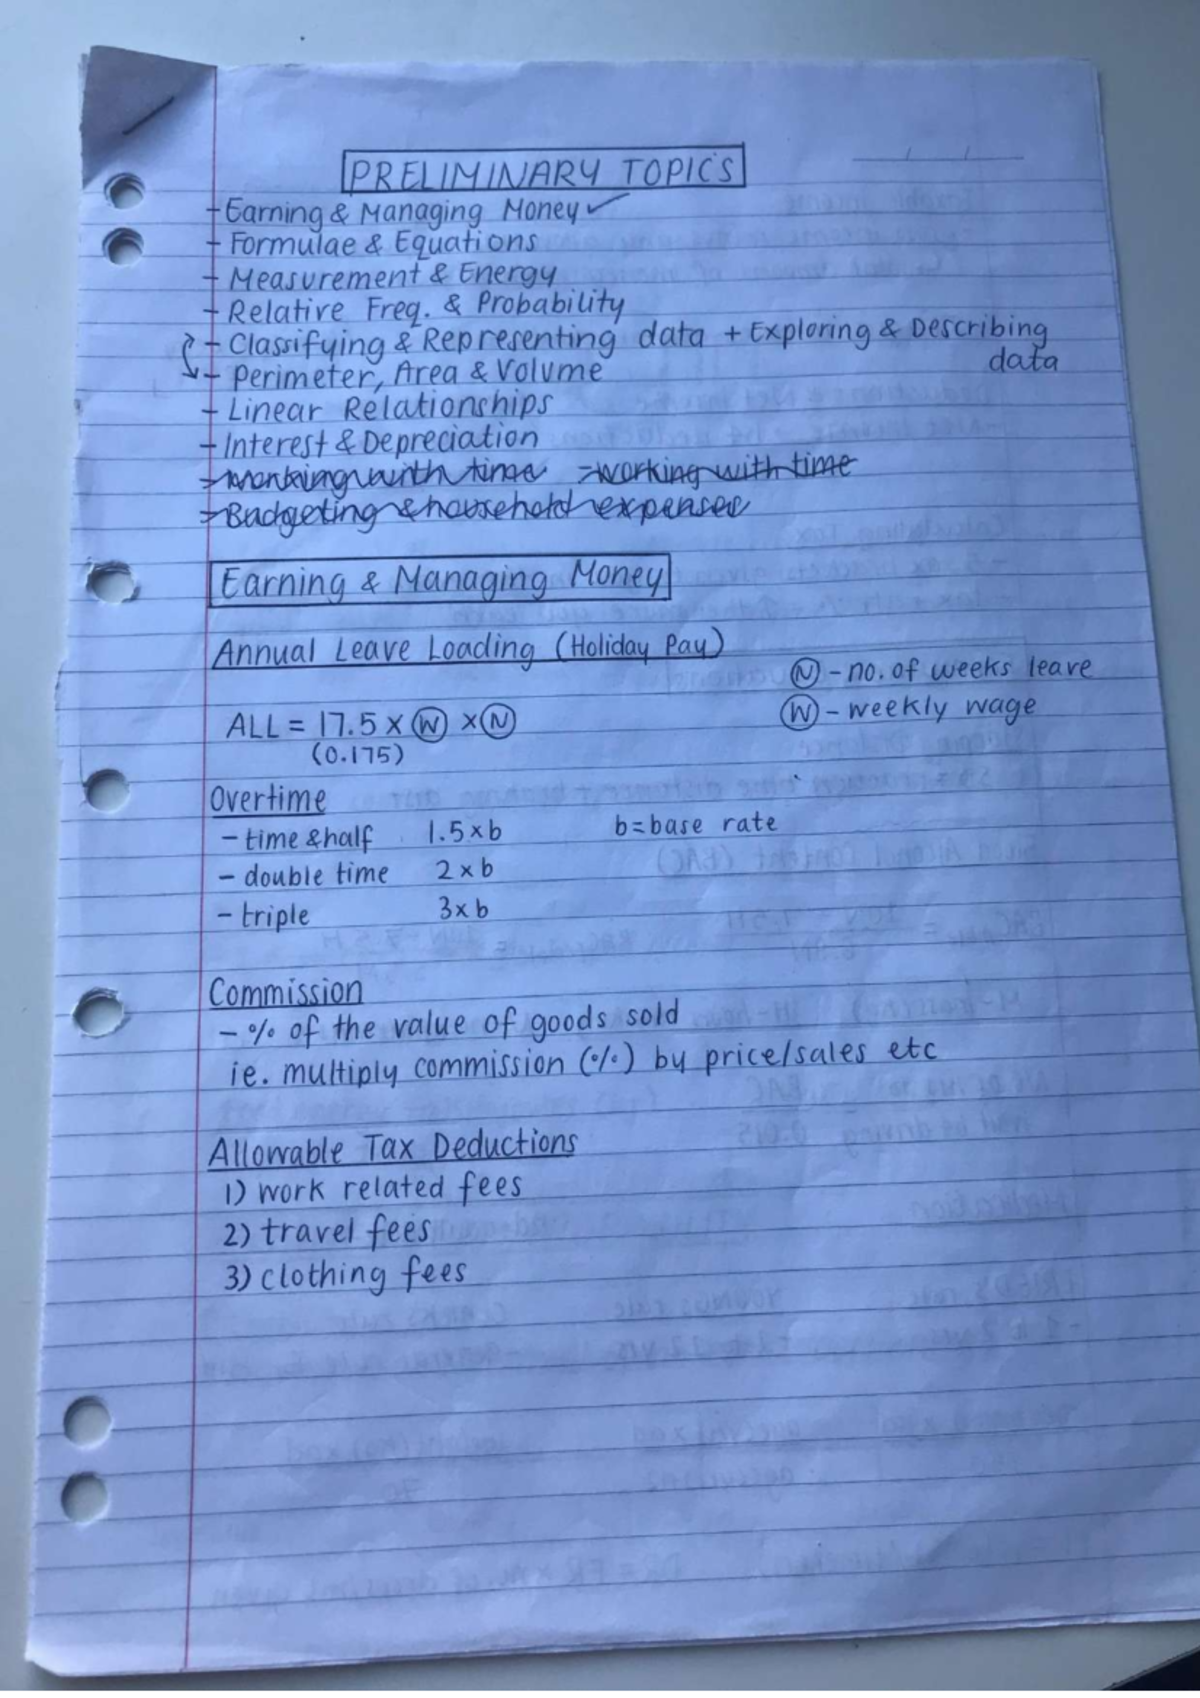 PRELIMINARY TOPICS
- Earning & Managing Money ✓
- Formulae & Equations
- Measurement & Energy
- Relative Freq. & Probability
- Classifying & Representing data + Exploring & Describing
data
- Perimeter, Area & Volume
- Linear Relationships
- Interest & Depreciation
- working with time - working with time
- Budgeting & household expenses
Earning & Managing Money
Annual Leave Loading (Holiday Pay)
N - no. of weeks leave
W - weekly wage
ALL = 17.5 × W × N
(0.175)
Overtime
- time & half 1.5 × b b = base rate
- double time 2 × b
- triple 3 × b
Commission
- % of the value of goods sold
ie. multiply commission (%) by price/sales etc
Allowable Tax Deductions
1) work related fees
2) travel fees
3) clothing fees